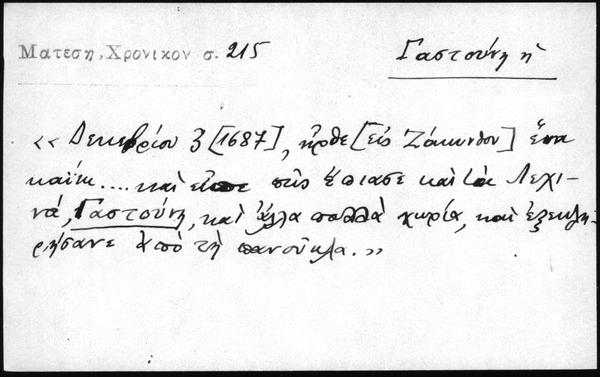 Ματεση, Χρονικον σ. 215
Γαστούνη ἡ
« Δεκεβρίου 3 [1687], ἦρθε [εἰς Ζάκυνθον] ἕνα
καΐκι.... καὶ εἶπε πῶς ἔπιασε καὶ τὰ Λεχι-
νά, Γαστούνη, καὶ ἄλλα πολλὰ χωρία, καὶ ἐξεκλη-
ρήσανε ἀπὸ τὴ πανούκλα. »